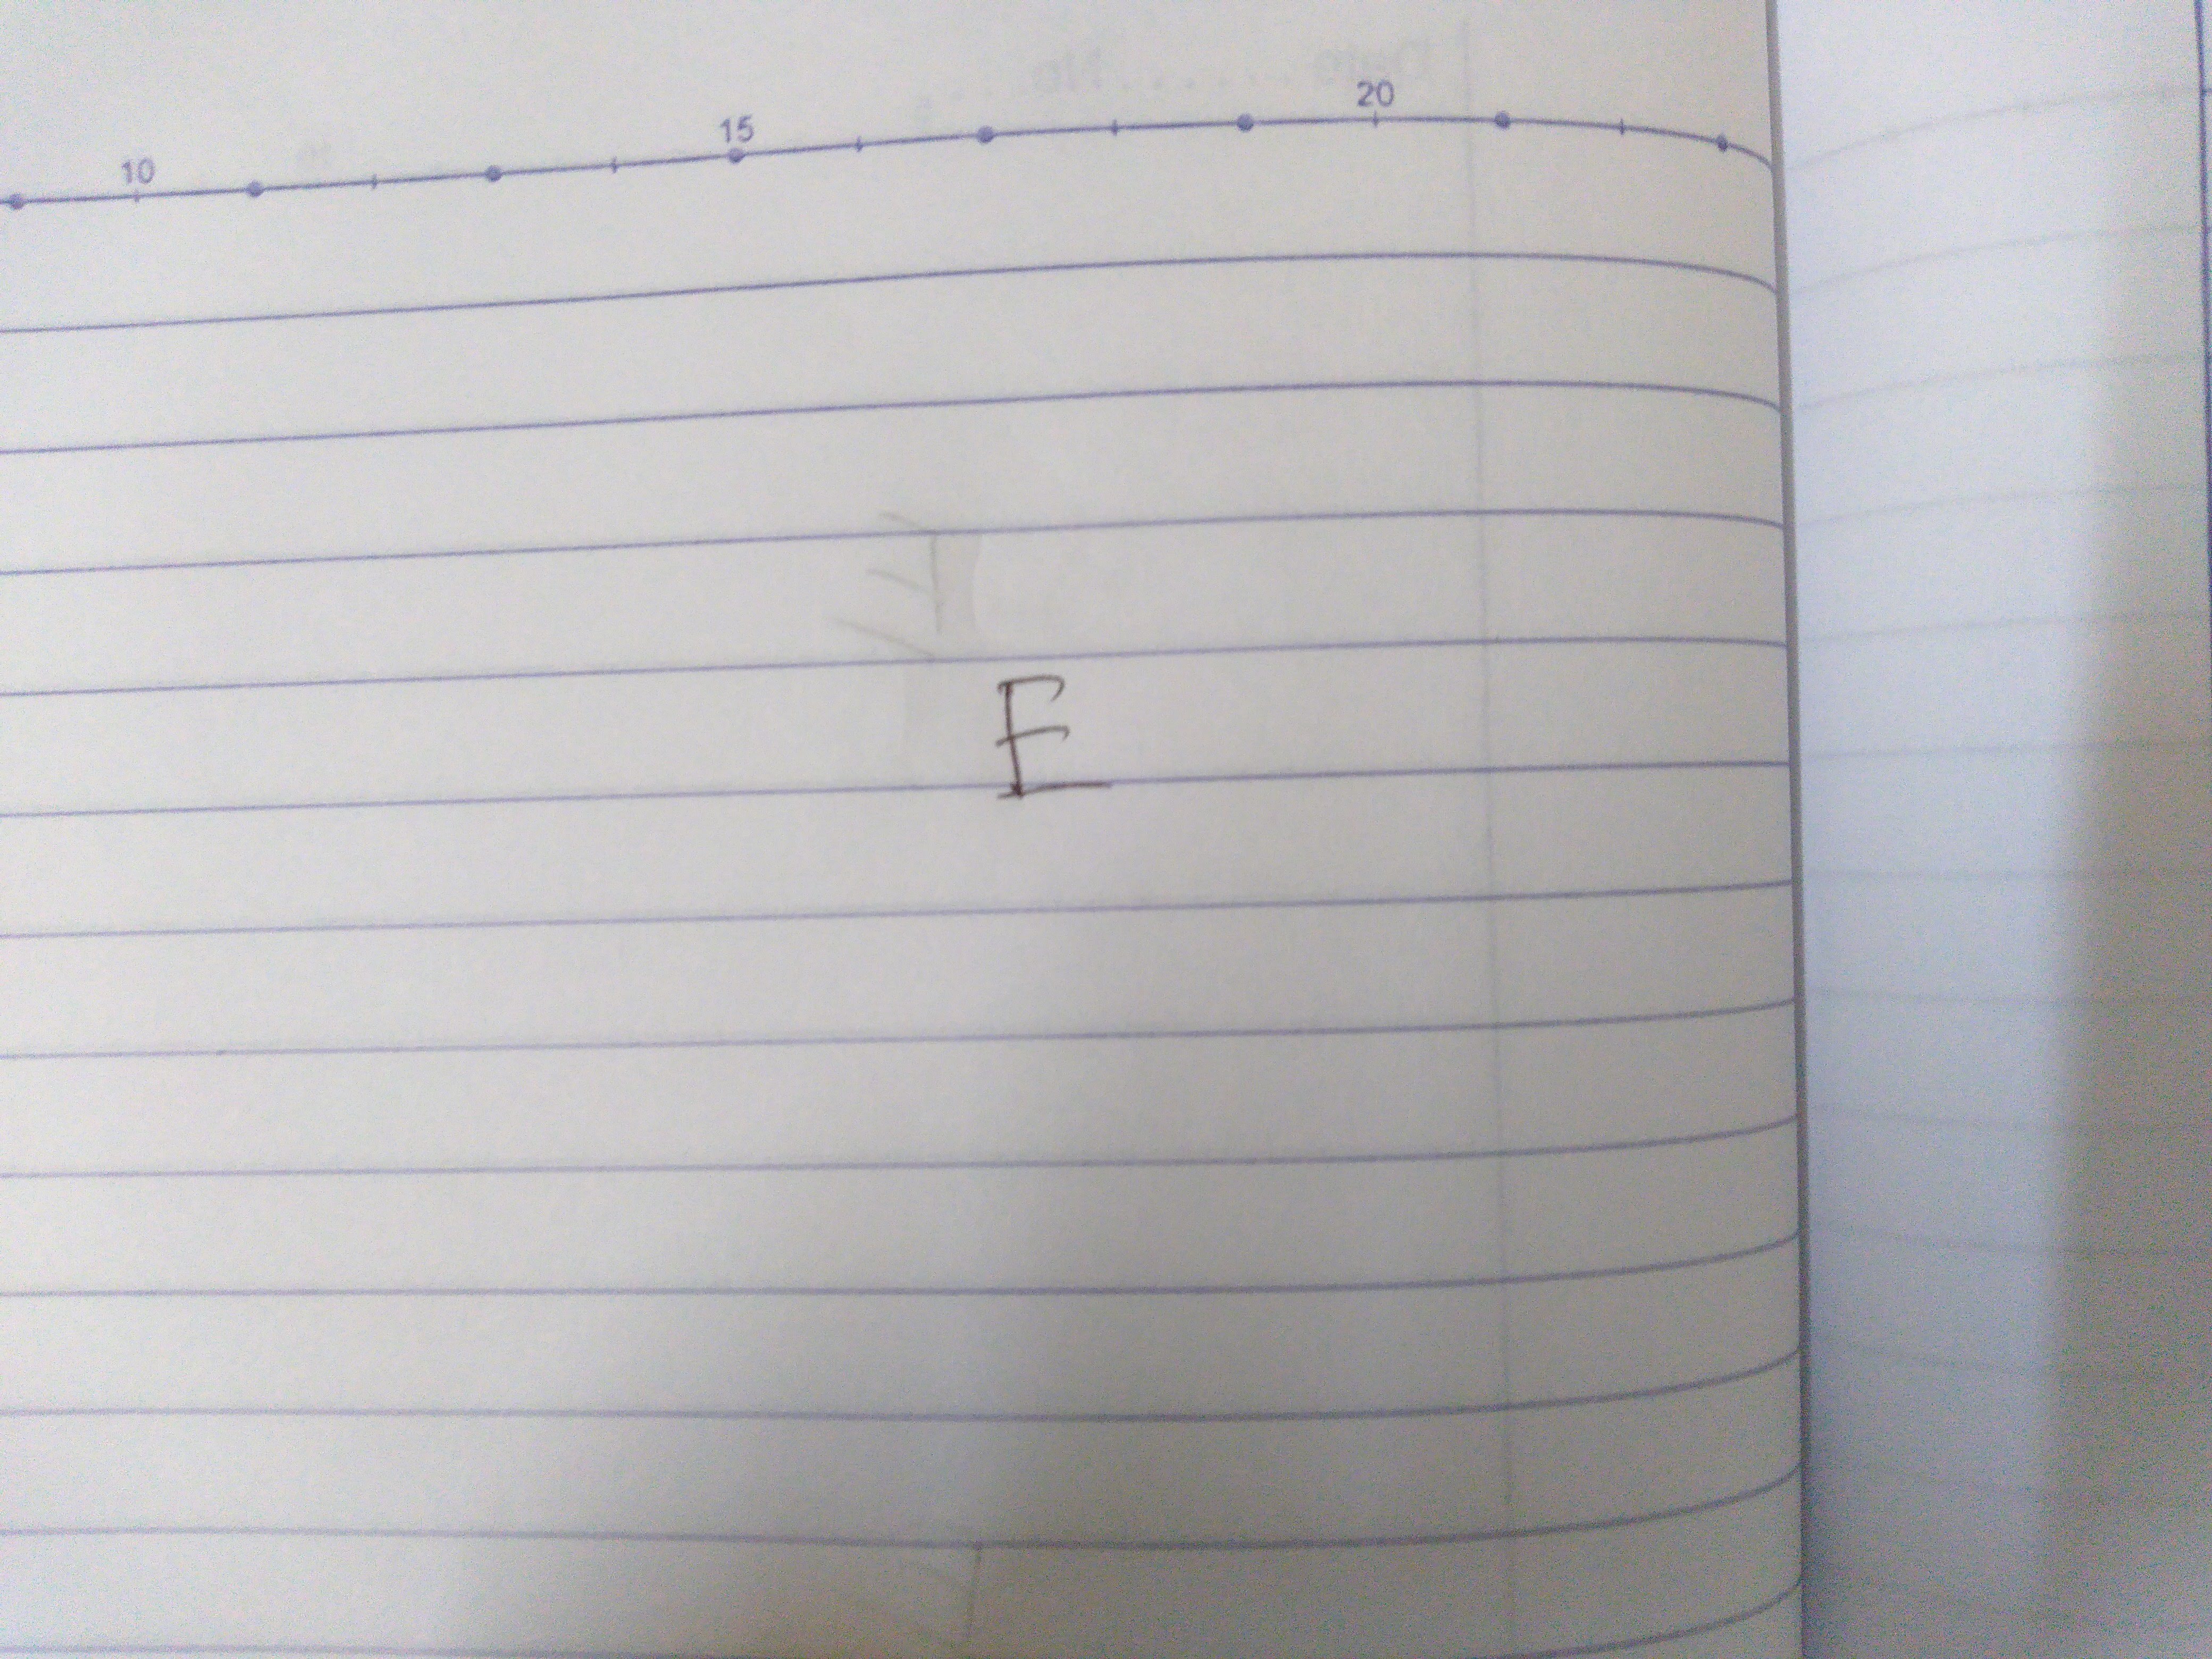 10 15 20
E